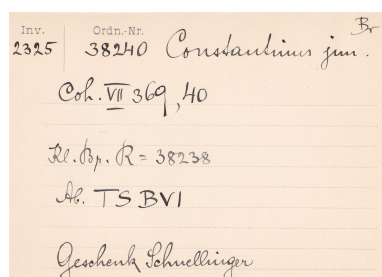 Br
Inv. Ordn.-Nr.
2325 38240 Constantinus jun.
Coh. VII 369, 40
Kl. Bp. R = 38238
Ab. TS BVI
Geschenk Schnellinger